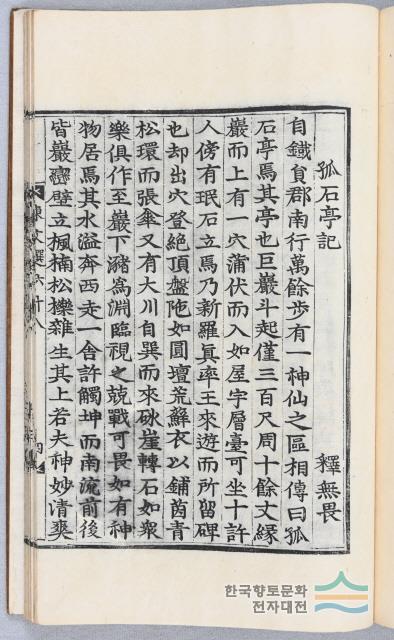 孤石亭記 釋無畏
自鐵貟郡南行萬餘步有一神仙之區相傳曰孤
石亭焉其亭也巨巖斗起僅三百尺周十餘丈緣
巖而上有一穴蒲伏而入如屋宇層臺可坐十許
人傍有珉石立焉乃新羅眞率王來遊而所留碑
也却出穴登絶頂盤陁如圓壇荒蘚衣以鋪茵青
松環而張傘又有大川自巽而來砅崖轉石如衆
樂俱作至巖下瀦爲淵臨視之兢戰可畏如有神
物居焉其水溢奔西走一舍許觸坤而南流前後
皆巖巒壁立楓楠松櫟雜生其上若夫神妙清爽
東文選
한국향토문화
전자대전